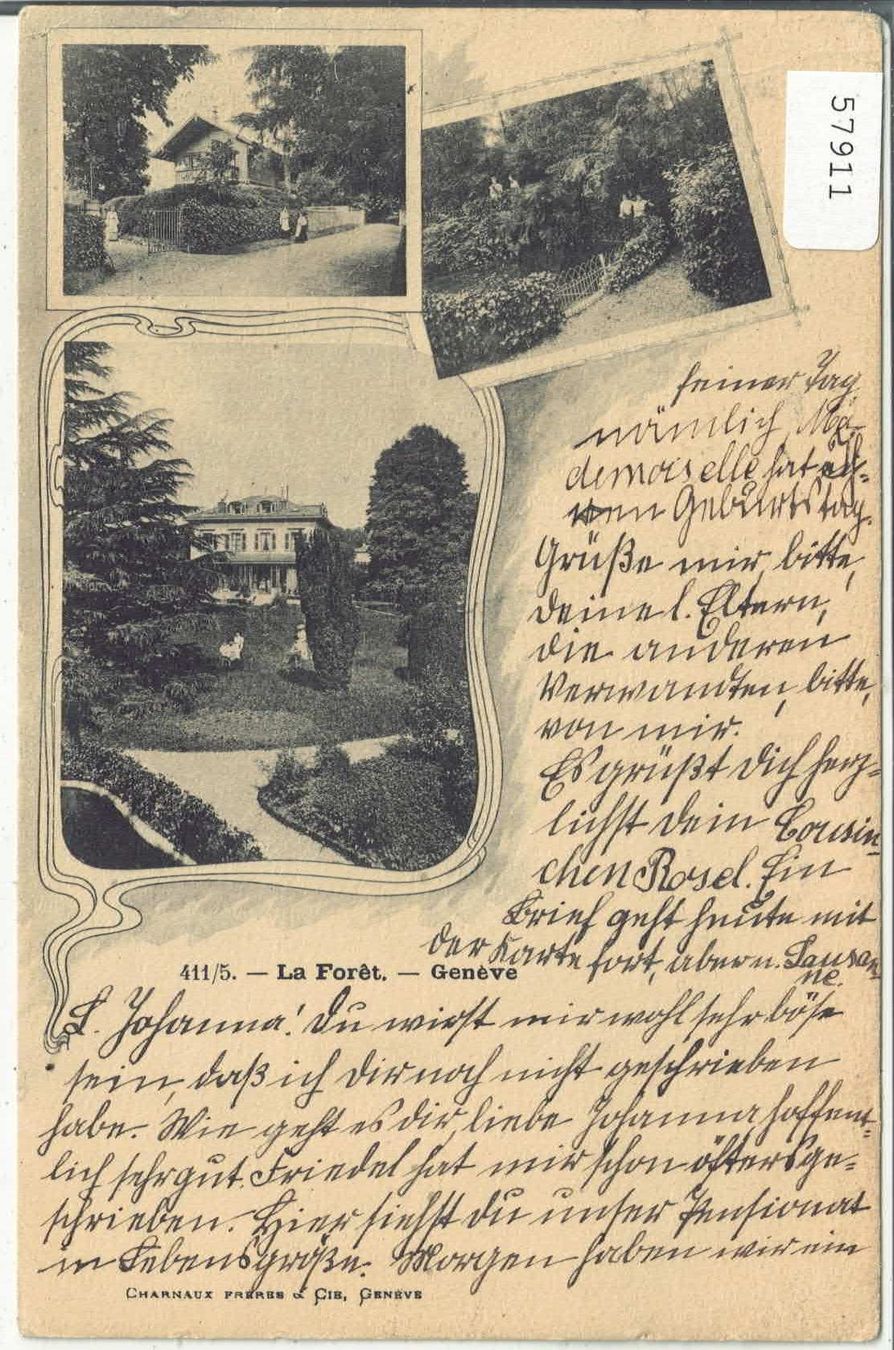 57911
411/5. — La Forêt. — Genève
L. Johanna! Du wirst mir wohl sehr böse
sein, daß ich dir noch nicht geschrieben
habe. Wie geht es dir, liebe Johanna hoffent-
lich sehr gut. Friedel hat mir schon öfters ge-
schrieben. Hier siehst du unser Pensionat
in Lebensgröße. Morgen haben wir ein
feiner Tag
nämlich Ma-
demoiselle hat ih-
ren Geburtstag.
Grüße mir, bitte,
deine l. Eltern,
die anderen
Verwandten, bitte,
von mir.
Es grüßt dich herz-
lichst dein Cousin-
chen Rosel. Ein
Brief geht heute mit
der Karte fort, aber n. Lausan-
ne.
CHARNAUX FRÈRES & CIE, GENÈVE